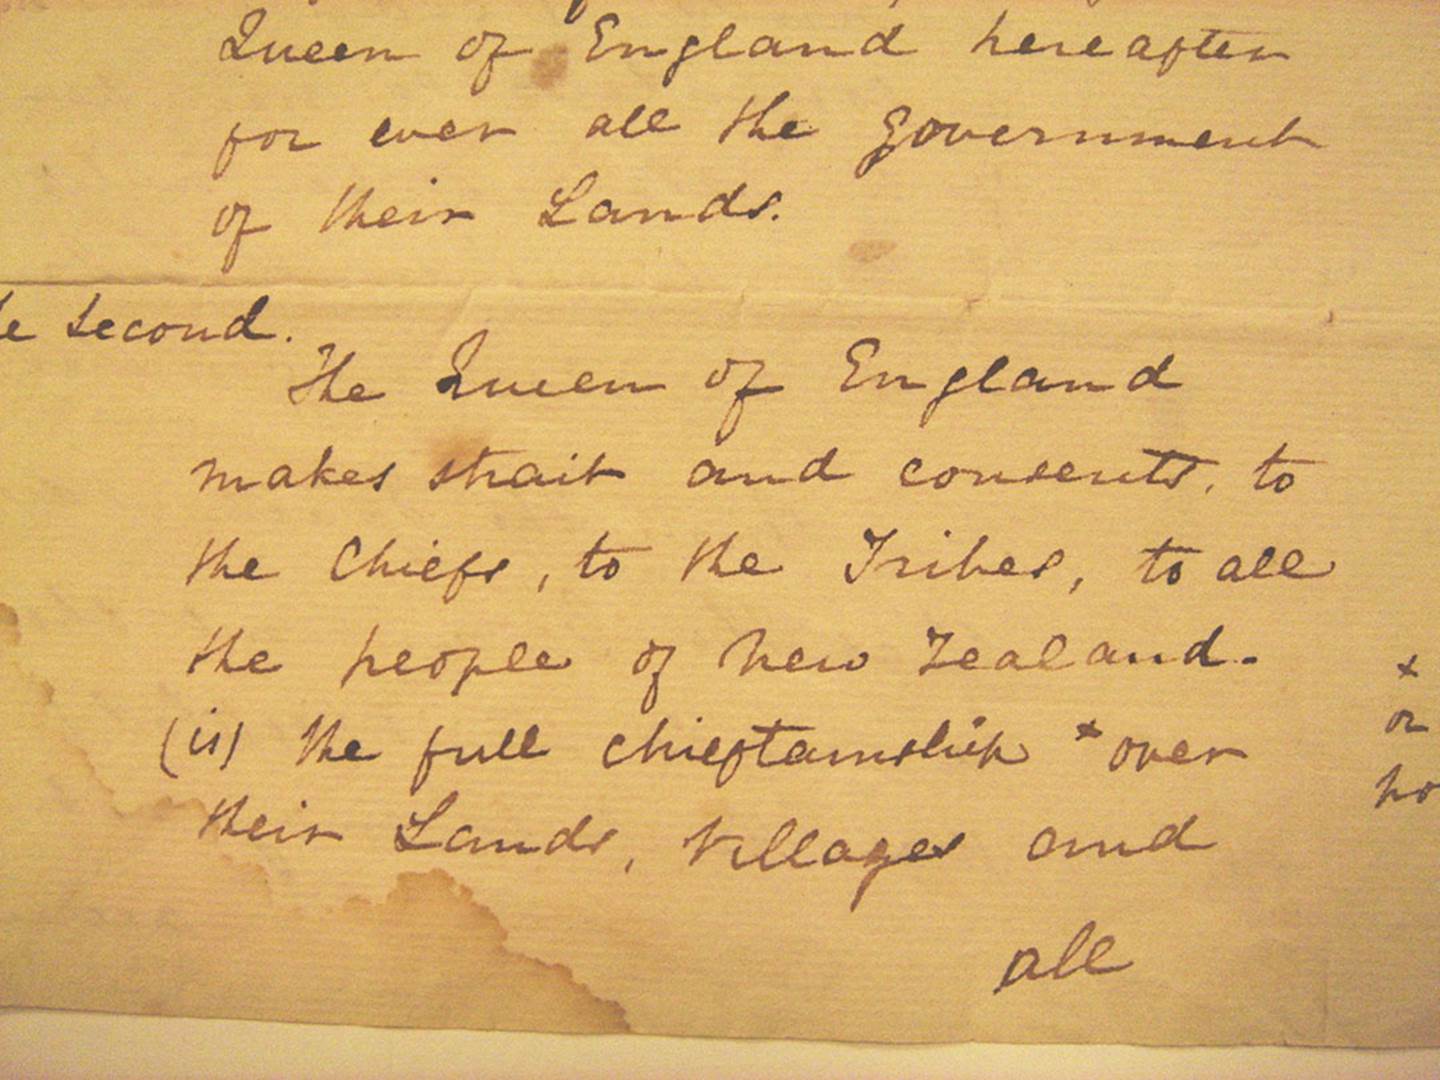 Queen of England hereafter
for ever all the Government
of their Lands.
le second.
The Queen of England
makes strait and consents, to
the Chiefs, to the Tribes, to all
the people of New Zealand.
(is) the full chieftainship × over
their Lands, Villages and
all
×
or